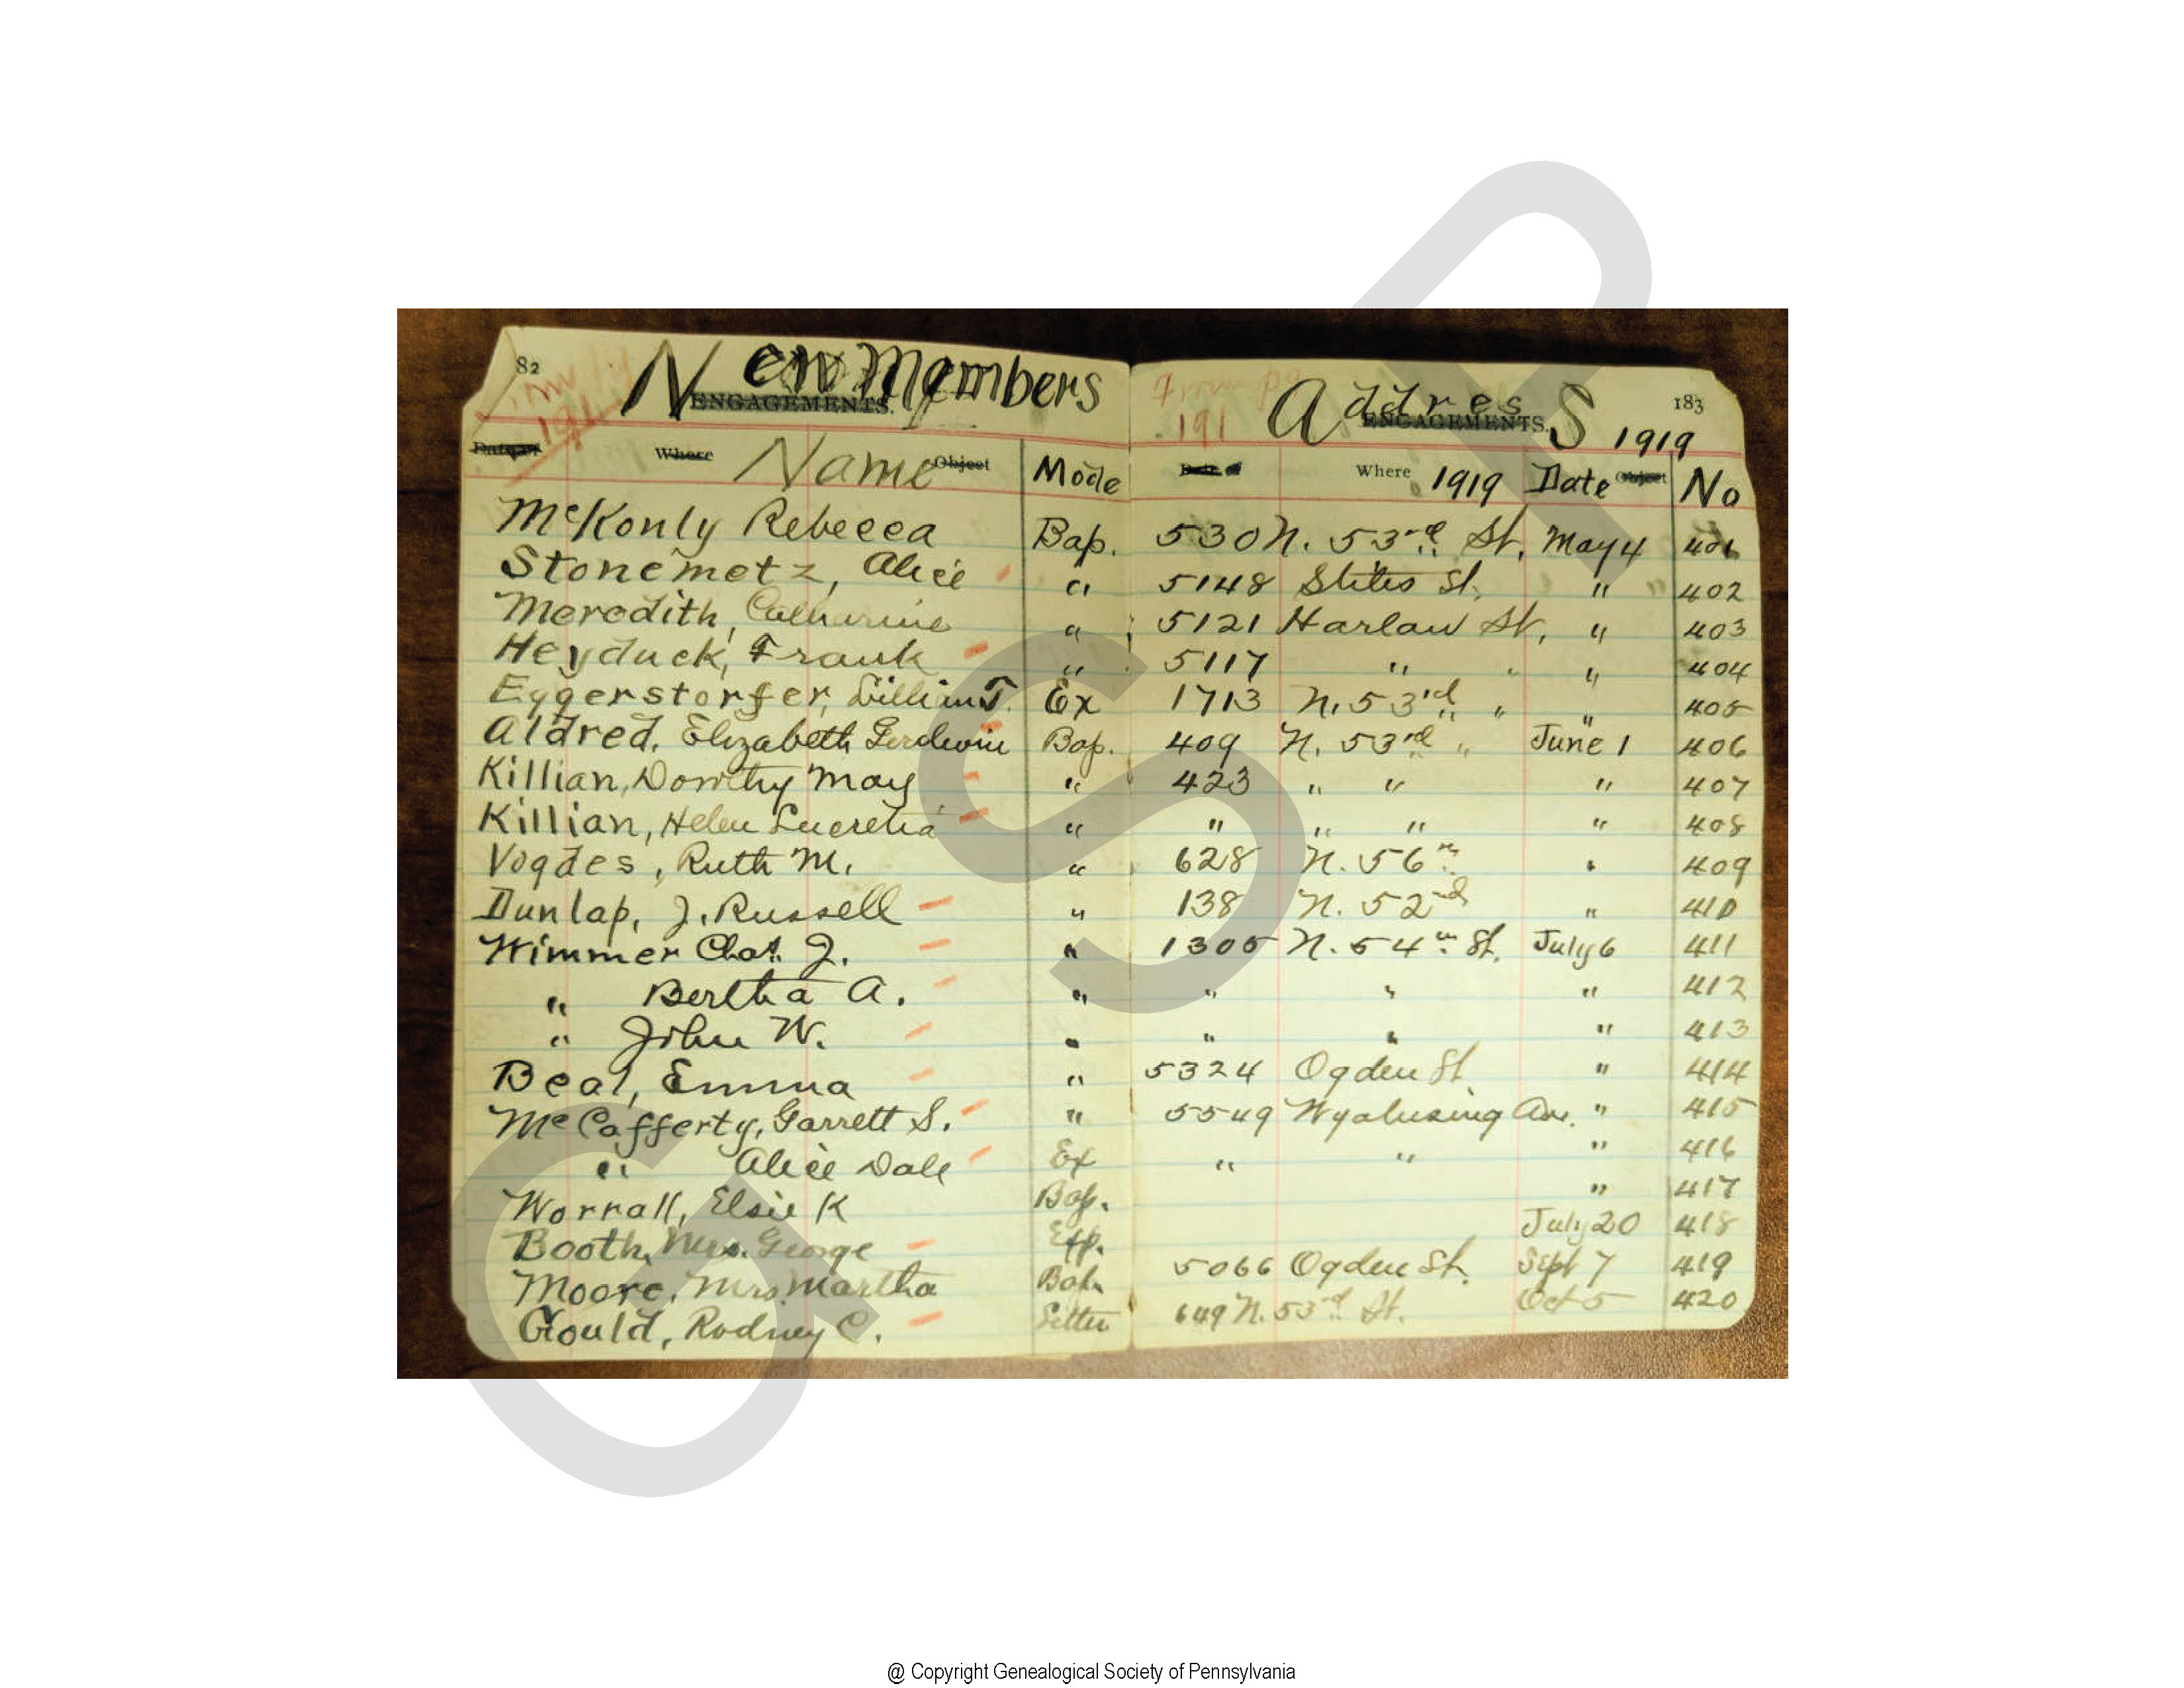 82
New Members
ENGAGEMENTS.
Where Name Object Mode
McKonly Rebecca Bap.
Stonemetz, Alice "
Meredith, Catharine "
Heyduck, Frank "
Eggerstorfer, William T. Ex
Aldred, Elizabeth Bap.
Killian, Dorothy May "
Killian, Helen Lucretia "
Vogdes, Ruth M. "
Dunlap, J. Russell "
Wimmer Chas. J. "
" Bertha A. "
" John W. "
Beal, Emma "
McCafferty, Garrett S. "
" Alice Dale Ex
Worrall, Elsie K Bap.
Booth, Mrs. George Exp.
Moore, Mrs. Martha Bap.
Gould, Rodney C. Letter
From pg 183
191 Address
ENGAGEMENTS. 1919
Where 1919 Date Object No
530 N. 53rd St. May 4 401
5148 Stiles St. " 402
5121 Harlan St. " 403
5117 " " " 404
1713 N. 53rd " " 405
409 N. 53rd " June 1 406
423 " " " 407
" " " " 408
628 N. 56th " 409
138 N. 52nd " 410
1305 N. 54th St. July 6 411
" " " 412
" " " 413
5324 Ogden St. " 414
5549 Wyalusing Av. " 415
" " " 416
" 417
July 20 418
5066 Ogden St. Sept 7 419
649 N. 53rd St. Oct 5 420
GSP
@ Copyright Genealogical Society of Pennsylvania